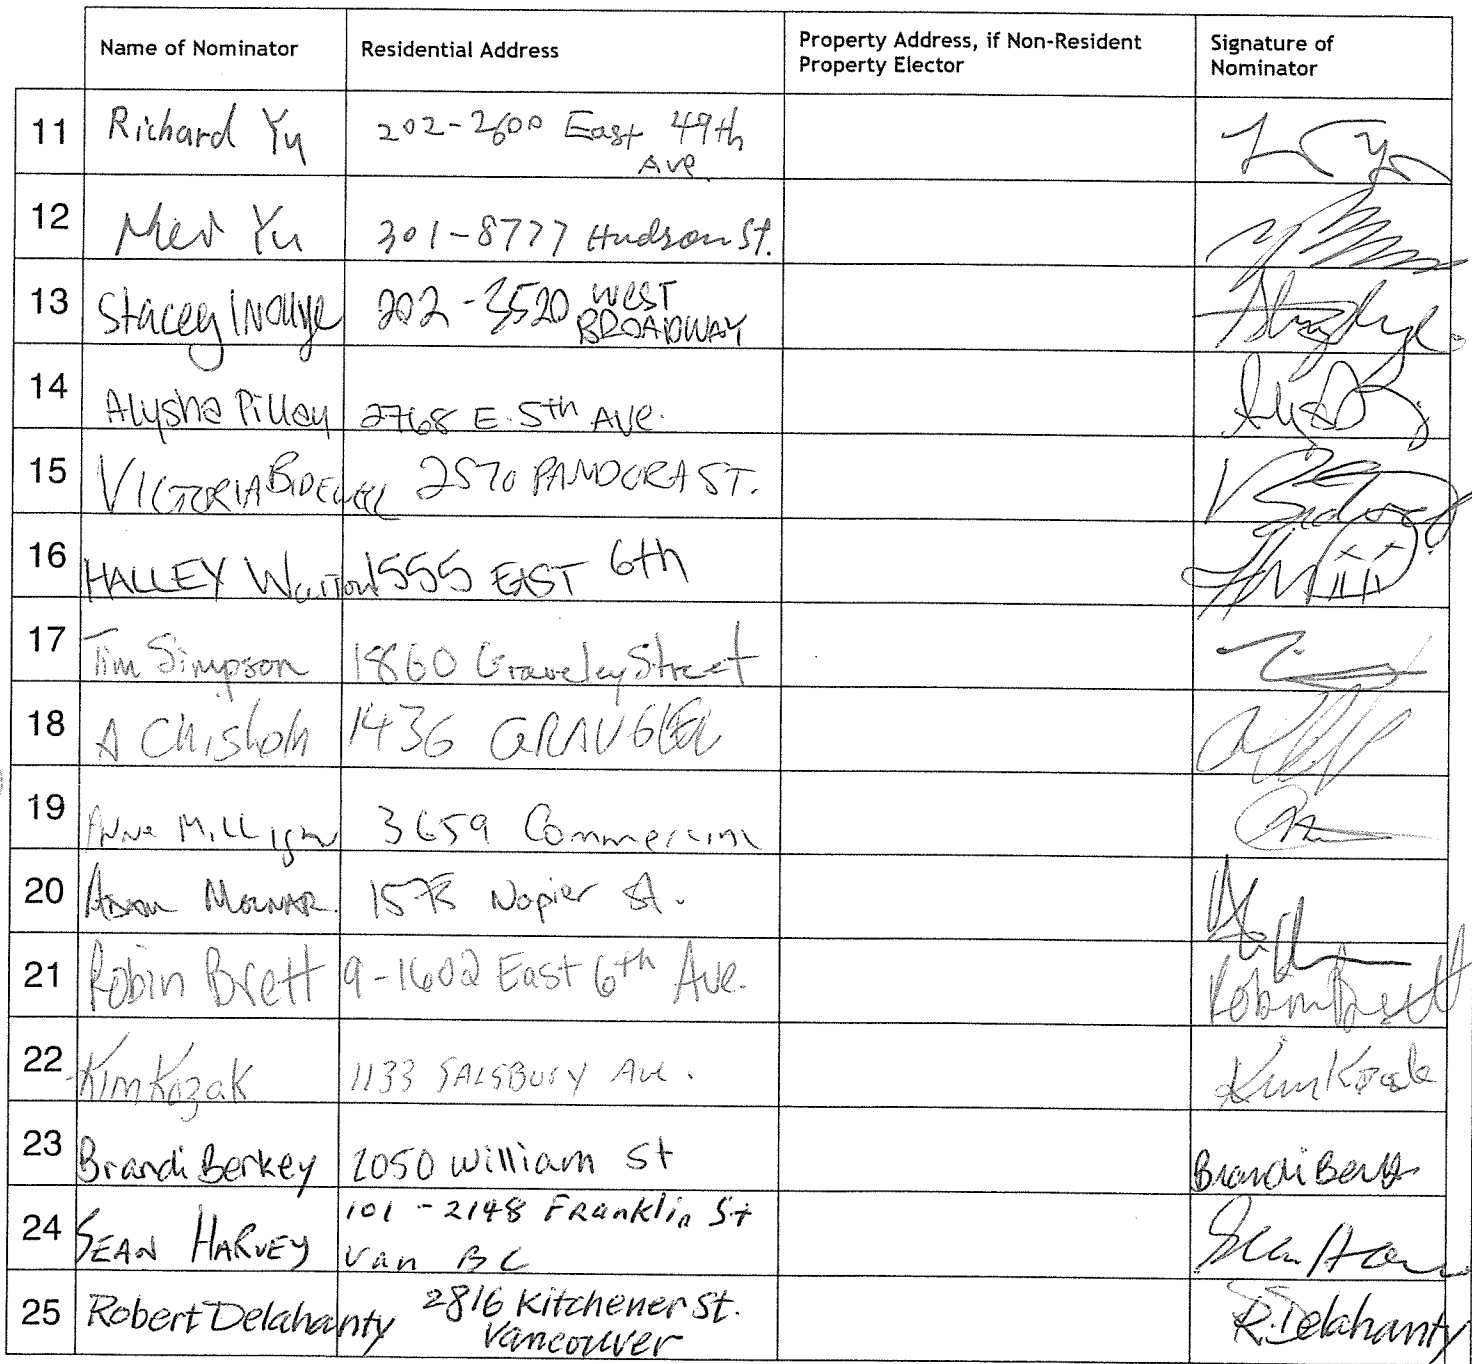 Name of Nominator Residential Address Property Address, if Non-Resident Property Elector Signature of Nominator
11 Richard Yu 202-2600 East 49th Ave
12 Yu 301-8777 Hudson St.
13 Stacey Inouye 202-3520 WEST BROADWAY
14 Alysha Pillay 2768 E. 5th AVE.
15 VICTORIA BIDEWELL 2570 PANDORA ST.
16 HALLEY 1555 EAST 6th
17 Tim Simpson 1860 Graveley Street
18 A Chisholm 1436
19 Anne Milligan 3659 Commercial
20 Adam Molnar Napier St.
21 Robin Brett 9-1602 East 6th Ave. Robin Brett
22 Kim Kozak 1133 SALSBURY Ave. Kim Kozak
23 Brandi Berkey 2050 William St Brandi
24 SEAN HARVEY 101-2148 Franklin St Van BC
25 Robert Delahanty 2816 Kitchener St. Vancouver R. Delahanty